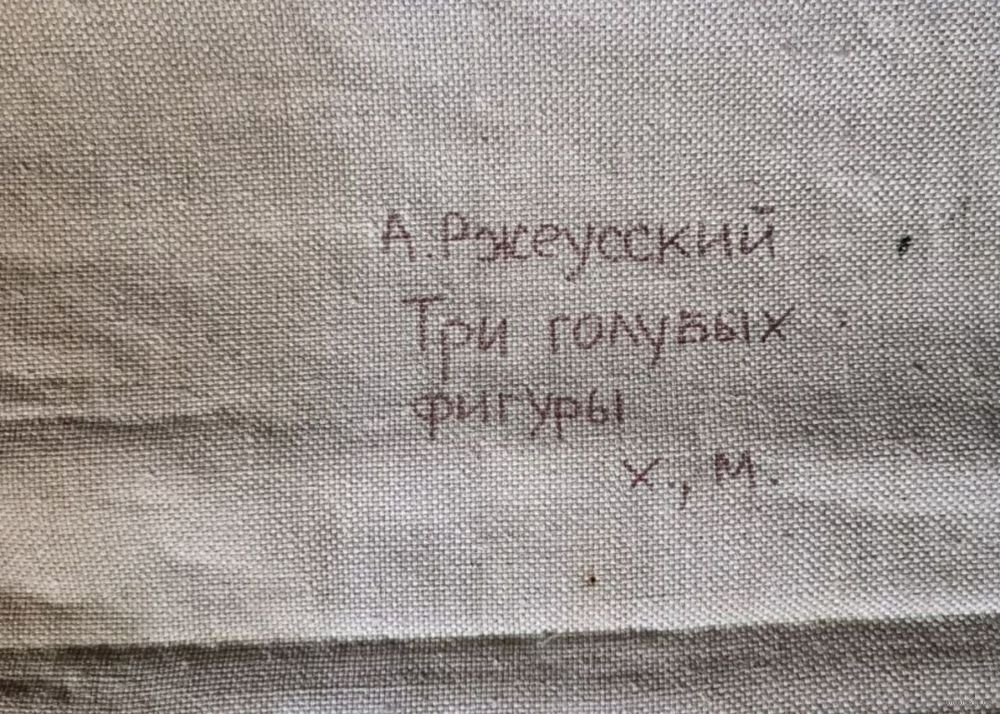 А. Ржеусский
Три голубых
фигуры
х., м.